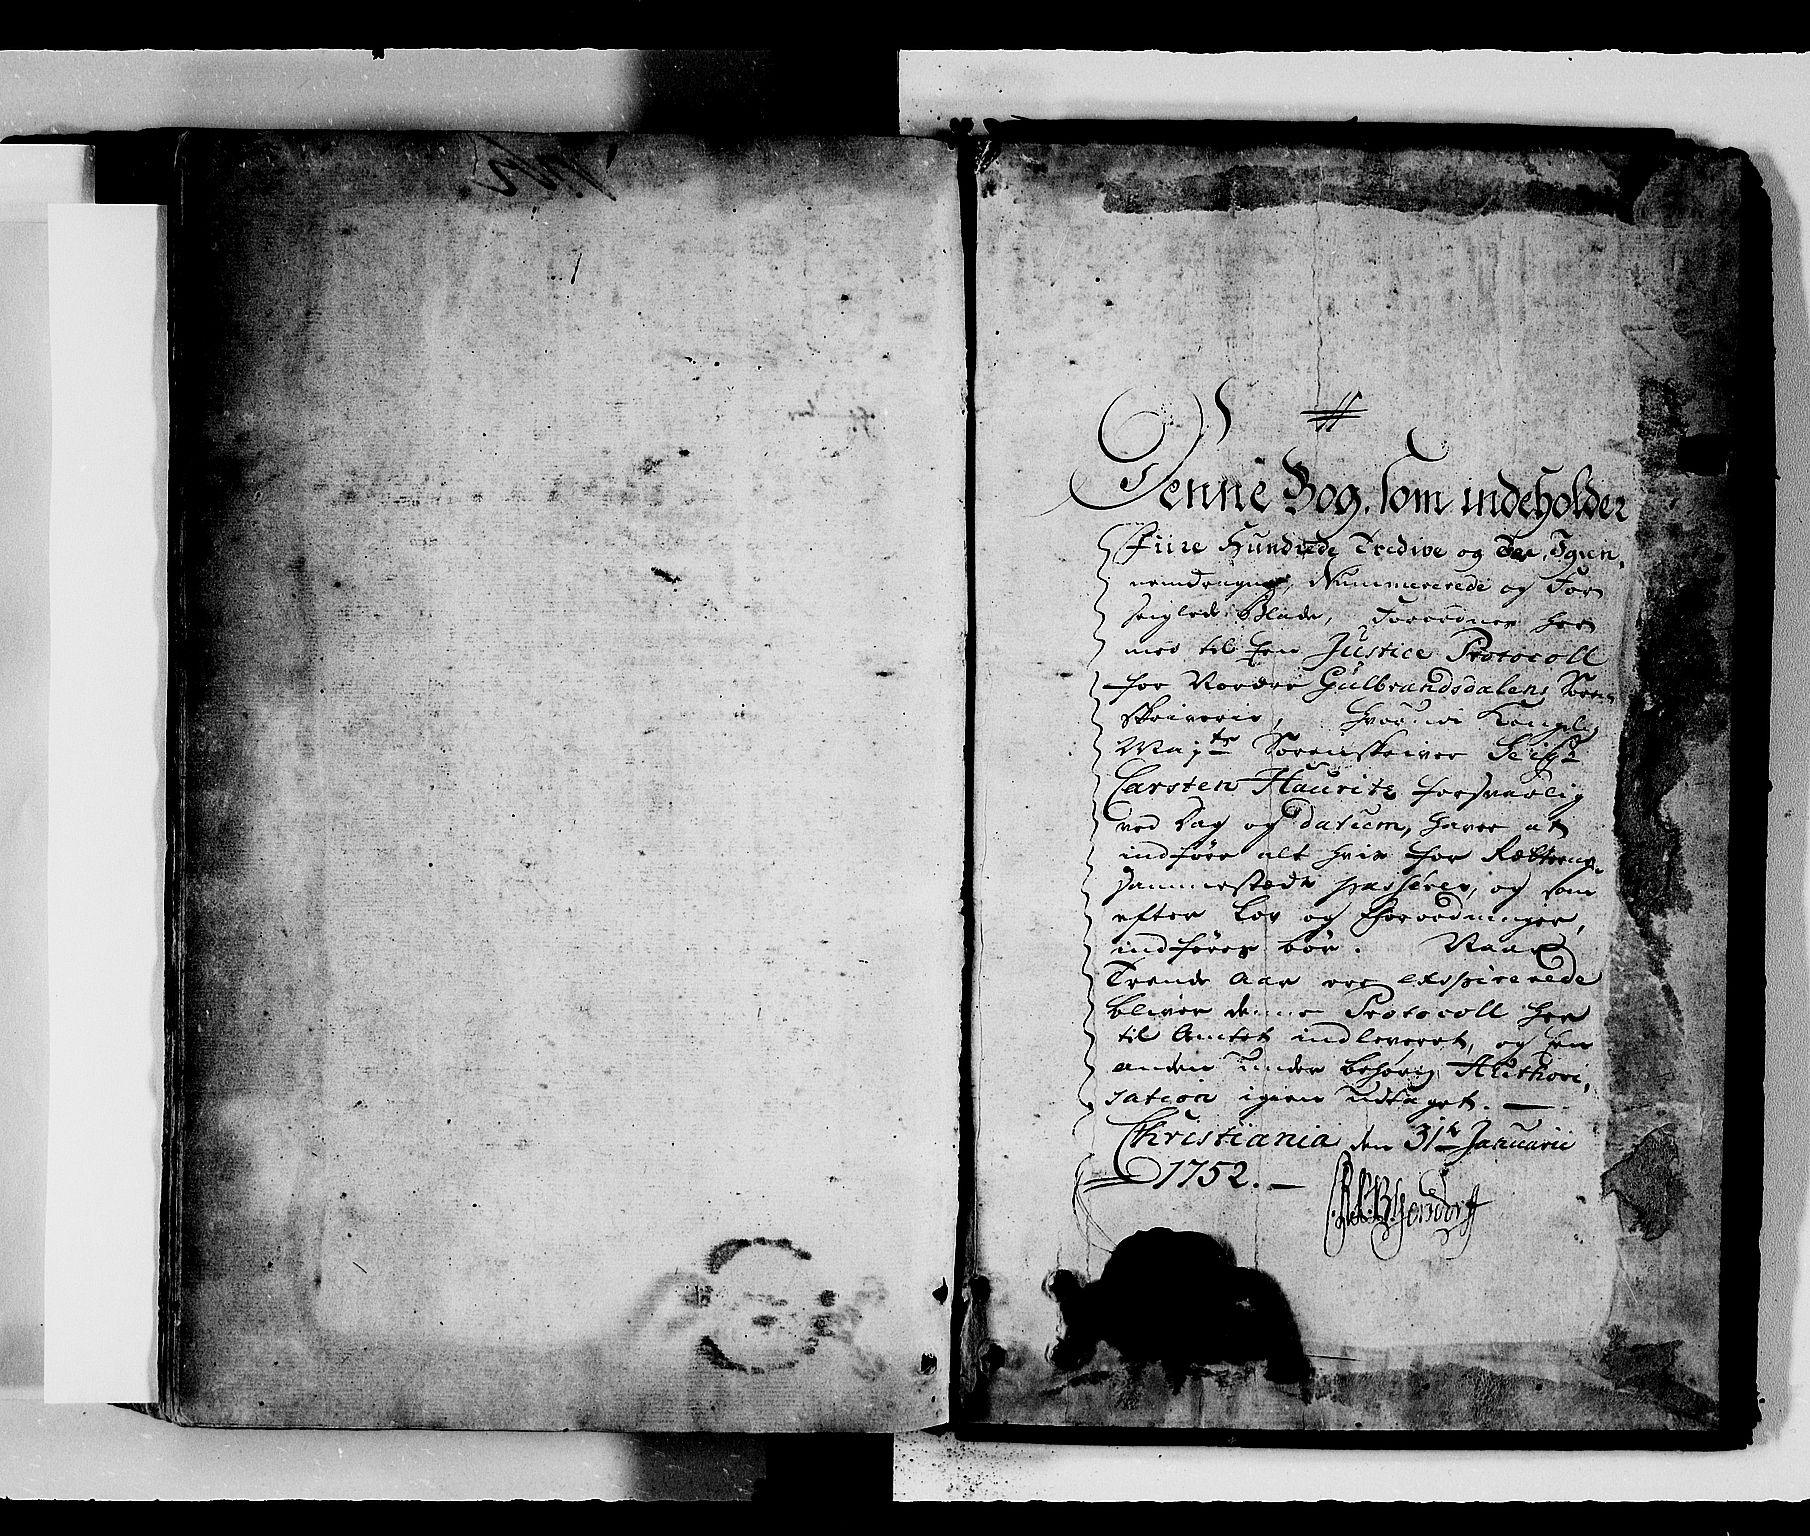 Denne Bog, som indeholder
Fiire Hundrede Tredive og Toe, Igien,
nemdragne, Nummererede og For
seiglede Blade, Forordnes her
med til Een Justice Protocoll
for Nordre Gulbrandsdalens Soren,
skriverie, hvorudi Kongl,
Mayts Sorenskriver Seigr
Carsten Hauritz forsvarlig
ved Dag og datum, haver at
indføre alt hvis for Rætterne
sammestæds passerer, og som
efter Lov og Forordninger,
indføres bør. Naar
Trende Aar ere exspirerede
bliver denne Protocoll her
til Amtet indleveret, og een
anden under behørig Authori,
sation igien udtaget.
Christiania den 31te Januarii
1752.